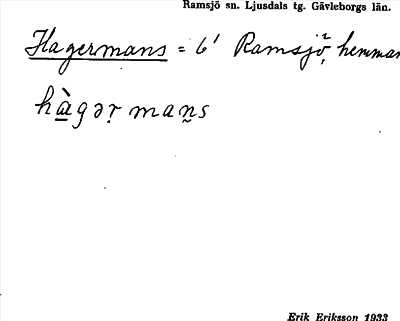 Ramsjö sn. Ljusdals tg. Gävleborgs län.
Hagermans = 6¹ Ramsjö², hemman
hàgəṛmaṇs
Erik Eriksson 1933